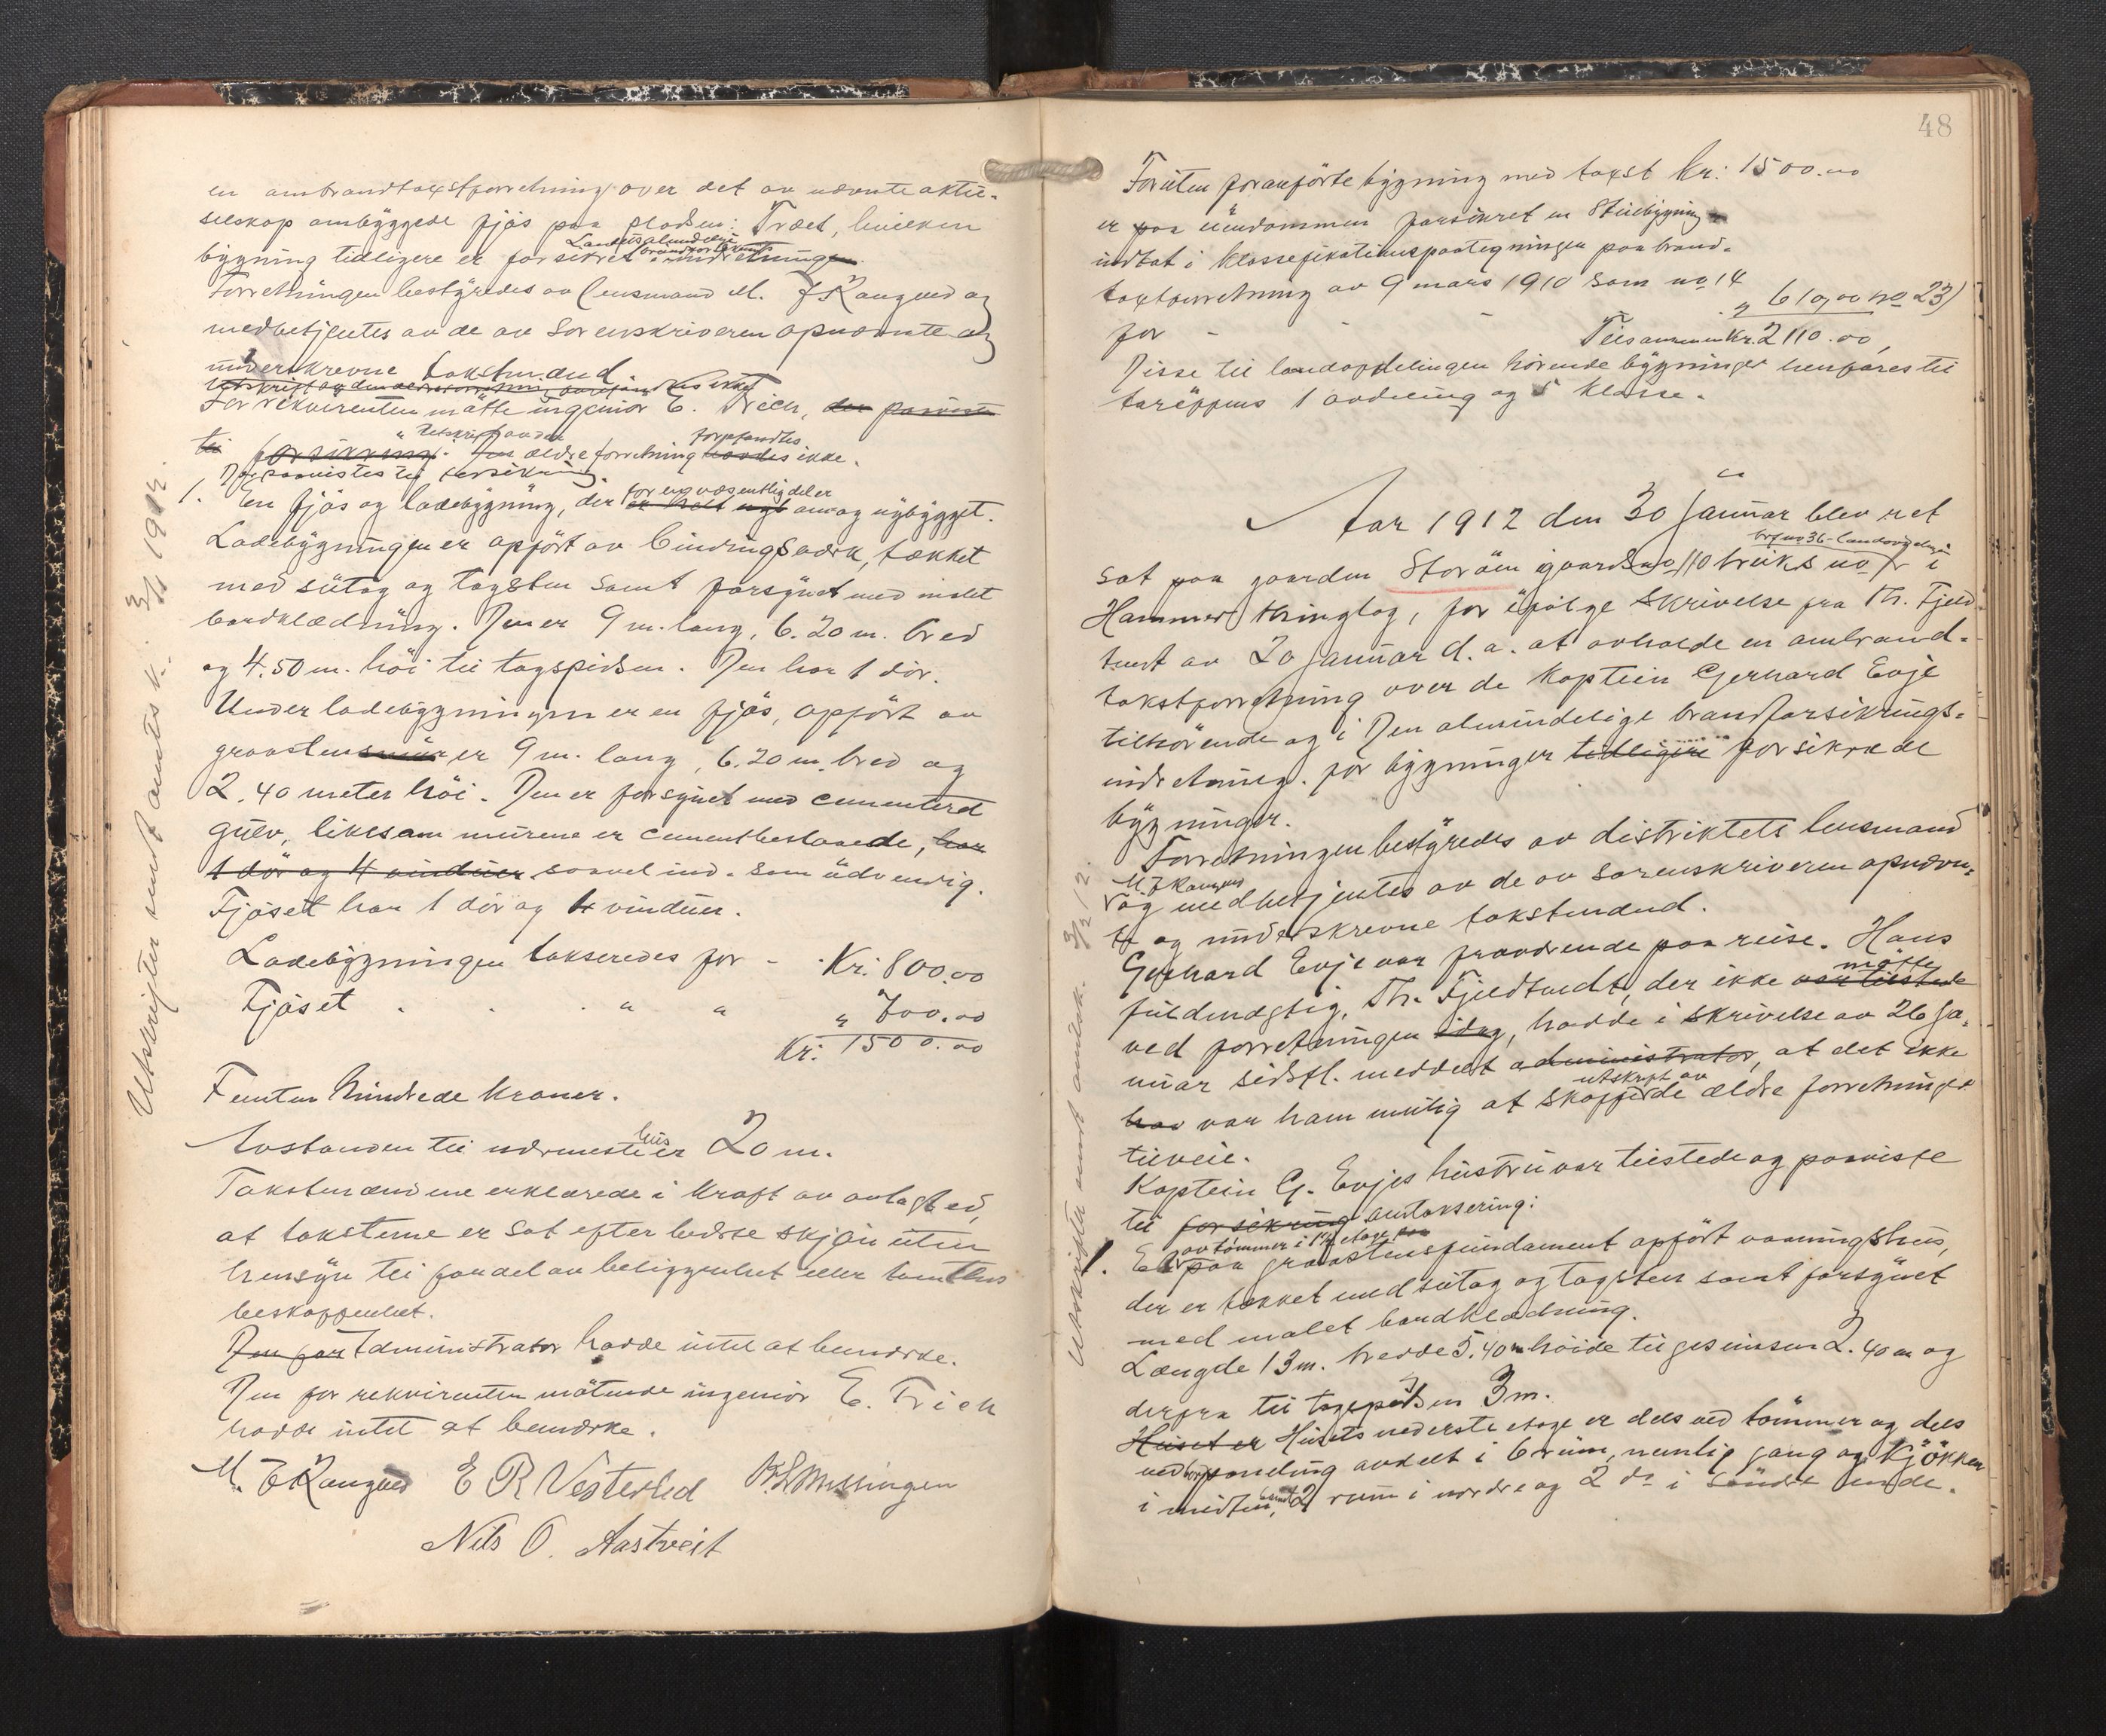 en ombrandtaxstforretning over det av nævnte aktie-
selskap ombyggede fjøs paa pladsen: Træet, hvilken
Landets almindelige
bygning tidligere er forsikret i indretningen.
Forretningen bestyredes av lensmand M. J Kangved og
medbetjentes av de av Sorenskriveren opnævnte og
underskrevne takstmænd.
For rekvirenten møtte ingeniør E. Trich, der paaviste
utskrift av den forefandtes
til forsikring. ældre forretning havdes ikke.
Der paavistes til forsikring
for en væsentlig del er
1. En fjøs og ladebygning, der er helt nyt om og nybygget.
Ladebygningen er opført av bindingsværk, tækket
med sutag og tagsten samt forsynet med malet
bordklædning. Den er 9 m. lang, 6.20 m. bred
og 4.50 m. høi til tagspidsen. Den har 1 dør.
Under ladebygningen er en fjøs, opført av
graastensmur er 9 m. lang, 6.20 m. bred og
2.40 meter høi. Den er forsynet med cementeret
gulv, likesom murene er cementbeslaaede, har
1 dør og 4 vinduer saavel ind- som udvendig.
Fjøset har 1 dør og 4 vinduer.
Ladebygningen takseredes for - Kr: 800.00
Fjøset " " " 700.00
Kr: 1500.00
Femten hundrede kroner.
hus
Avstanden til nærmeste er 20 m.
Takstmændene erklærede i kraft av avlagt ed,
at taksterne er sat efter bedste skjøn uten
hensyn til fordel av beliggenhet eller tomtens
beskaffenhet.
Den for Administrator hadde intet at bemerke.
Den for rekvirenten møtende ingeniør E. Trich
hadde intet at bemærke.
M. J Kangved E R Vesterlid
Nils O. Aastveit
Utskrifter sendt amtet
48
Foruten foranførte bygning med taxst kr: 1500.00
er paa eiendommen forsikret en Stuebygning
indtat i klassefikationspaategningen paa brand-
taxtforretning av 9 mars 1910 som no 14
for - - " 610,00 no 23)
Tilsammen Kr. 2110.00,
Disse til landavdelingen hørende bygninger henføres til
tarifens 1 avdeling og 5 klasse.
Aar 1912 den 30 Januar blev ret
brf no 36 - landavdelingen
sat paa gaarden Storøen gaards no 110 bruks no 1 i
Hammer thinglag, for ifølge skrivelse fra Th. Fjeld-
tvedt av 20 januar d. a. at avholde en ombrand-
takstforretning over de Kaptein Gerhard Evje
tilhørende og i Den almindelige brandforsikrings-
indretning for bygninger tidligere forsikrede
bygninger.
Forretningen bestyredes av distriktets lensmand
M J Kangved
og medbetjentes av de av sorenskriveren opnævn-
te og underskrevne takstmænd.
Gerhard Evje var fraværende paa reise. Hans
møtte
fuldmægtig, Th. Fjeldtvedt, der ikke var tilstede
ved forretningen idag, hadde i skrivelse av 26 Ja-
nuar sidstl. meddelt administrator, at det ikke
utskrift av
hav var ham mulig at skaffe de ældre forretninger
tilveie.
Kaptein G. Evjes hustru var tilstede og paaviste
til forsikring omtaksering:
av tømmer i 1½ etage
1. Et paa graastensfundament opført vaaningshus,
der er tækket med sutag og tagsten samt forsynet
med malet bordklædning.
Længde 13 m. bredde 5.40 m høide til gesimsen 2.40 m og
derfra til tagspidsen 3 m.
Huset er Husets nederste etage er dels ved tømmer og dels
ved bordpaneling avdelt i 6 rum, nemlig gang og kjøkken
i midten, samt 2 rum i nordre og 2 do i søndre ende.
Utskrifter sendt amtsk. 3/2 12.